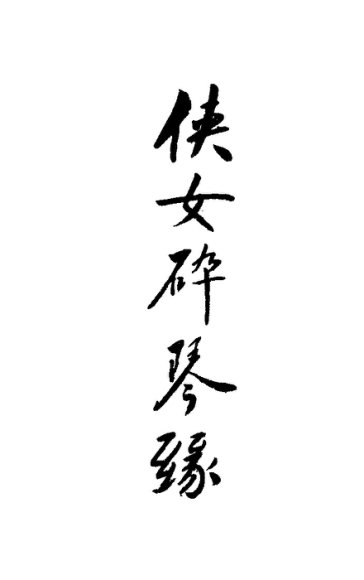 侠女碎琴缘